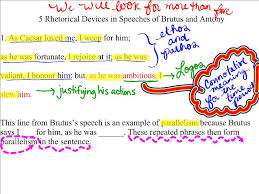 We will look for more than five
5 Rhetorical Devices in Speeches of Brutus and Antony
ethos and pathos
1. As Caesar loved me, I weep for him;
as he was fortunate, I rejoice at it; as he was
valiant, I honour him: but, as he was ambitious, I
slew him.
Logos
justifying his actions
Connotative meaning for the time period
This line from Brutus's speech is an example of parallelism because Brutus
says I for him, as he was _____. These repeated phrases then form
parallelism in the sentence.